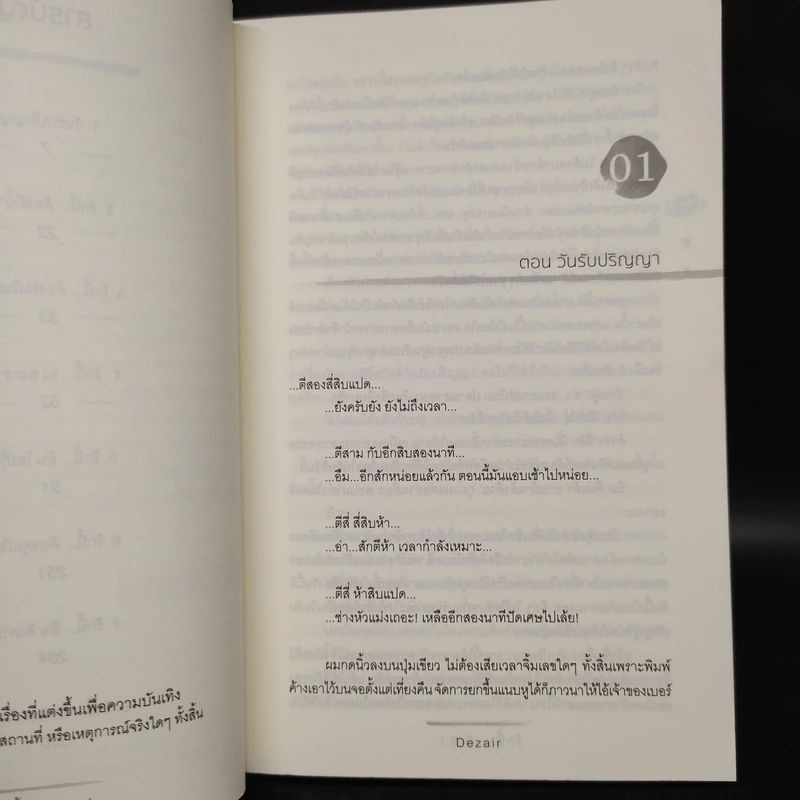 เรื่องที่แต่งขึ้นเพื่อความบันเทิง
สถานที่ หรือเหตุการณ์จริงใดๆ ทั้งสิ้น
01
ตอน วันรับปริญญา
...ตีสองสี่สิบแปด...
...ยังครับยัง ยังไม่ถึงเวลา...
...ตีสาม กับอีกสิบสองนาที...
...อืม...อีกสักหน่อยแล้วกัน ตอนนี้มันแอบเช้าไปหน่อย...
...ตีสี่ สี่สิบห้า...
...อ่า...สักตีห้า เวลากำลังเหมาะ...
...ตีสี่ ห้าสิบแปด...
...ช่างหัวแม่งเถอะ! เหลืออีกสองนาทีปัดเศษไปเล้ย!
ผมกดนิ้วลงบนปุ่มเขียว ไม่ต้องเสียเวลาจิ้มเลขใดๆ ทั้งสิ้นเพราะพิมพ์
ค้างเอาไว้บนจอตั้งแต่เที่ยงคืน จัดการยกขึ้นแนบหูได้ก็ภาวนาให้ไอ้เจ้าของเบอร์
Dezair